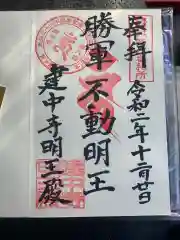 奉拝
令和二年十二月廿日
勝軍不動明王
建中寺明王殿